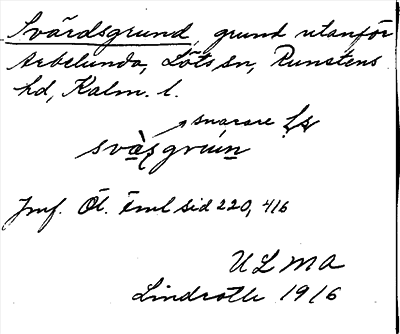 Svärdsgrund, grund utanför
Arbelunda, Löts sn, Runstens
hd, Kalm. l.
snarare
svàsgrún
Jmf. Öl. Eml sid 220, 416
ULMA
Lindroth 1916